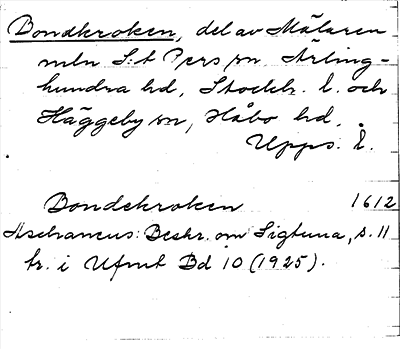 Bondkroken, del av Mälaren
mln S:t Pers sn Ärling-
hundra hd, Stockh. l. och
Häggeby sn, Håbo hd.
Upps. l.
Bondekroken 1612
Aschaneus: Beskr. om Sigtuna, s. 11
tr. i Ufmt Bd 10 (1925).